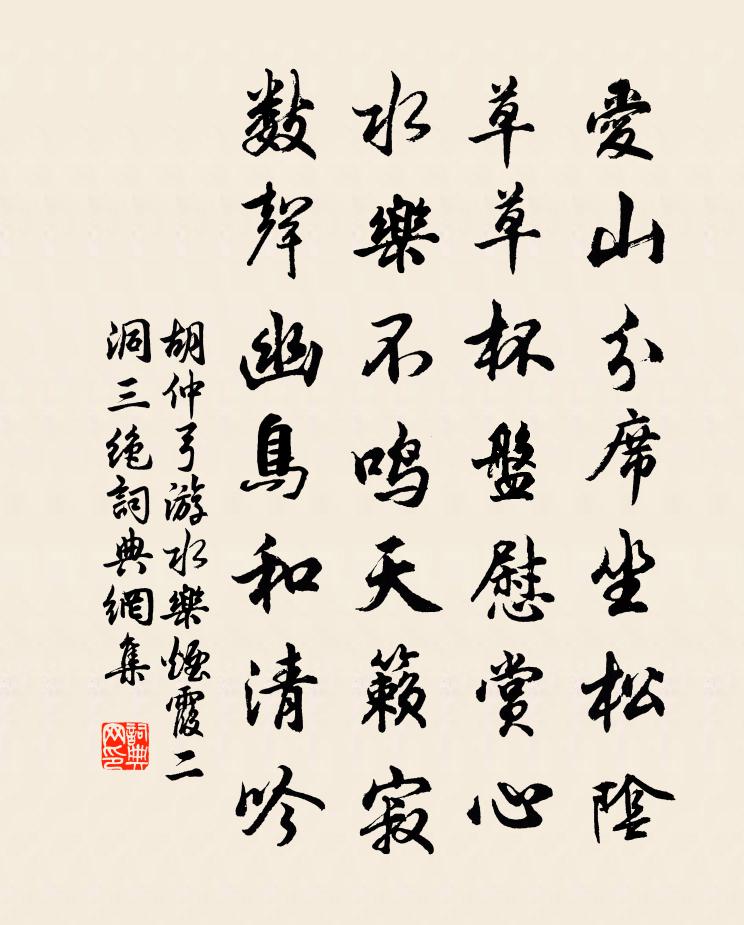 愛山分席坐松陰
草草杯盤慰賞心
水樂不鳴天籟寂
數聲幽鳥和清吟
胡仲弓游水樂煙霞二
洞三絕詞典網集
詞典
网印